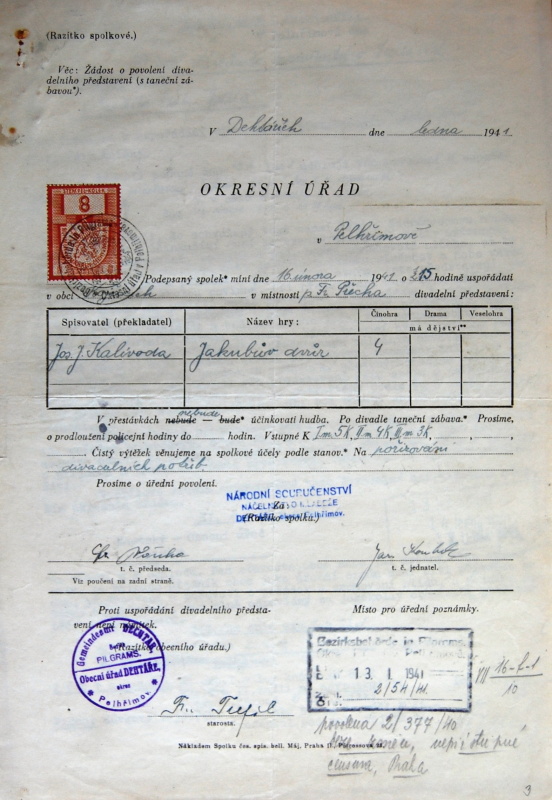 (Razítko spolkové.)
Věc: Žádost o povolení diva-
delního představení (s taneční zá-
bavou*).
V Dehtářích dne ledna 1941
OKRESNÍ ÚŘAD
STEMPEL KOLEK
8
v Pelhřimově
Podepsaný spolek* míní dne 16 února 1941 o hodině uspořádati
v obci v místnosti p Fr. Plecha divadelní představení:
Spisovatel (překladatel) Název hry: Činohra Drama Veselohra
má dějství**
Jos. J. Kalivoda Jakubův dvůr 4
nebude
V přestávkách nebude — bude* účinkovati hudba. Po divadle taneční zábava.* Prosíme,
o prodloužení policejní hodiny do hodin. Vstupné K I m 5K, II m 4K, III m 3K,
Čistý výtěžek věnujeme na spolkové účely podle stanov.* Na pořizování
divadelních potřeb.
Prosíme o úřední povolení.
NÁRODNÍ SOURUČENSTVÍ
Za:
(Razítko spolku.)
DEHTÁŘE, okres Pelhřimov.
Jan
t. č. předseda. t. č. jednatel.
Viz poučení na zadní straně.
Proti uspořádání divadelního předsta-
vení není námitek.
Místo pro úřední poznámky.
(Razítko obecního úřadu.)
Gemeindeamt DECHTAR
Bezirk
PILGRAMS.
Obecní úřad DEHTÁŘE,
okres
Pelhřimov.
Bezirksbehörde in Pilgrams.
13. I. 1941
2/54/41.
VII 16-I-1
10
Fr.
starosta.
povolena 2/377/40
censura, Praha
Nákladem Spolku čes. spis. bell. Máj, Praha II.,
3